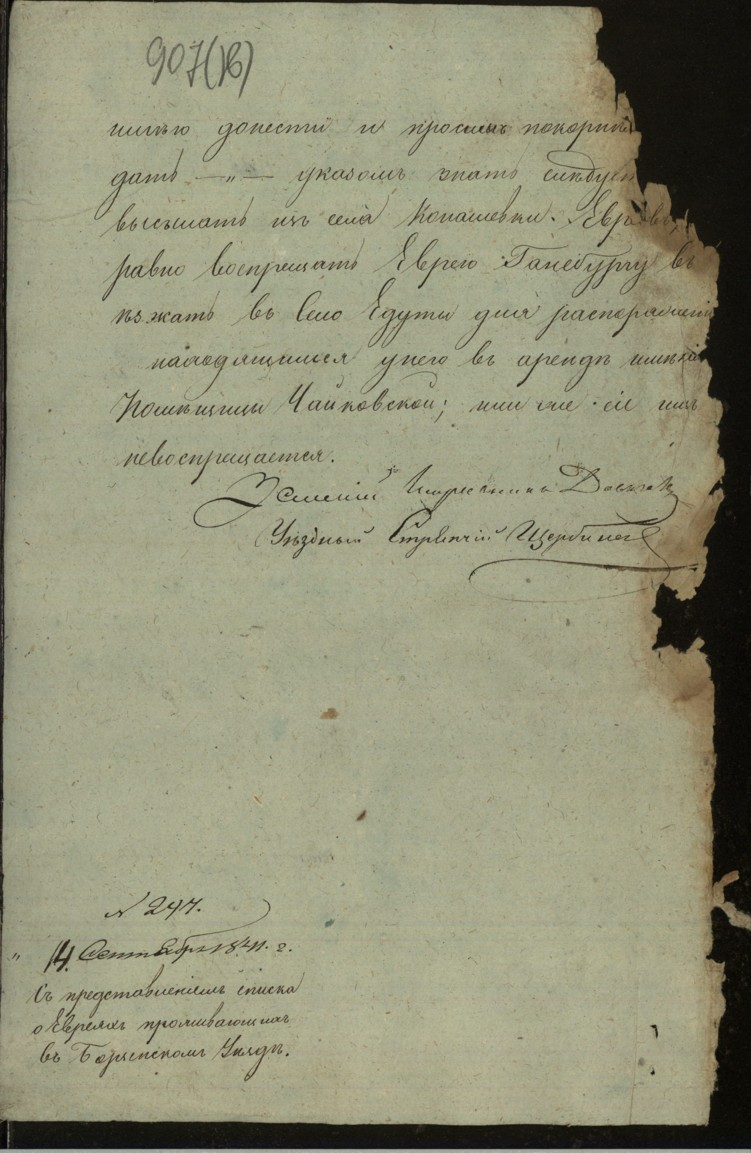 907(В)
донести и просимъ покорн
дать —„— указомъ знать слѣдует
высылать изъ села Копашевки. Евр
равно воспрещать Еврею въ
ѣзжать въ Село Едуты для распоряжені
находящимся у него въ арендѣ имѣні
Помѣщицы Чайковской; или же
невоспрещается.
Земскій Исправникъ
Уѣздный Стряпчій Щербина
№ 247.
„ 14. Сентября 1841. г.
Съ представленіемъ списка
о Евреяхъ проживающихъ
въ Борзенскомъ Уѣздѣ.